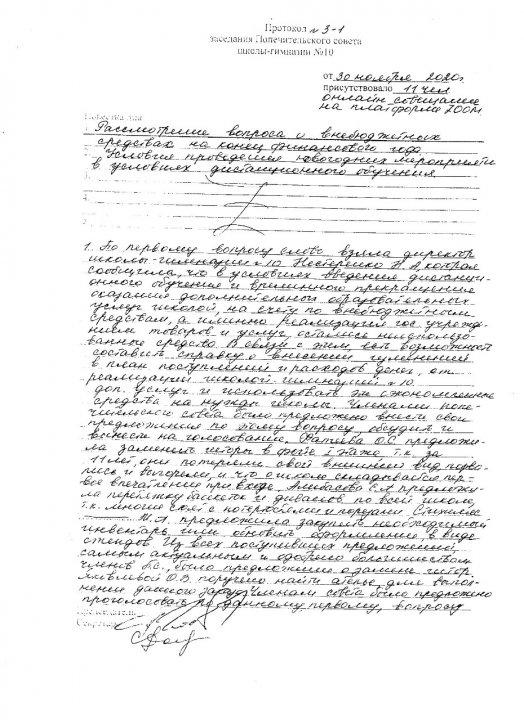 Протокол № 3-1
заседания Попечительского совета
школы-гимназии №10
от 30 ноября 2020г
присутствовало 11 чел
онлайн совещание
на платформе ZOOM
Повестка дня
Рассмотрение вопроса о внебюджетных
средствах на конец финансового года
Условия проведения новогодних мероприятий
в условиях дистанционного обучения
1. По первому вопросу слово взяла директор
школы-гимназии №10 Нестеренко Н.А. которая
сообщила, что в условиях введения дистанци-
онного обучения и временного прекращения
оказания дополнительных образовательных
услуг школой, на счету по внебюджетным
средствам, а именно реализация гос. учрежде-
нием товаров и услуг остались неиспользо-
ванные средства. В связи с этим есть возможность
составить справку о внесении изменений
в план поступлений и расходов денег, от
реализации школой-гимназией №10
доп. услуг и использовать эти сэкономленные
средства на нужды школы. Членами попе-
чительского совета было предложено внести свои
предложения по этому вопросу, обсудить и
вынести на голосование. О.С. предложи-
ла заменить шторы в фойе 1 этажа, т.к. за
11 лет, они потеряли свой внешний вид, порва-
лись и выгорели, и что о школе складывается пер-
вое впечатление при входе. предложи-
ла перетяжку банкеток и диванов по всей школе,
т.к. многие уже с потертостями и порезами
предложила закупить необходимый
инвентарь или обновить оформление в виде
стендов. Из всех поступивших предложений,
самым актуальным и одобрено большинством
членов П.С., было предложение о замене штор.
Яковлевой О.В. поручено найти ателье для выпол-
нения данного заказа. Членам совета было предложено
проголосовать по данному первому вопросу